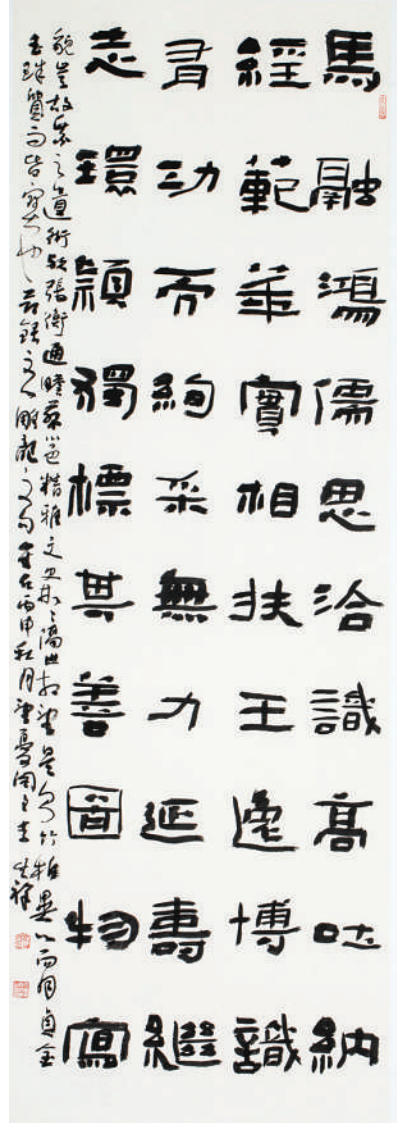 馬融鴻儒思洽識高吐納
經範華實相扶王逸博識
有功而絢采無力延壽繼
志環穎獨標其善圖物寫
貌豈枚乘之遺術歟張衡通贍蔡邕精雅文史彬彬隔世相望是則竹柏異心而同貞金
玉殊質而皆寶也節錄文心雕龍之句丙申秋月